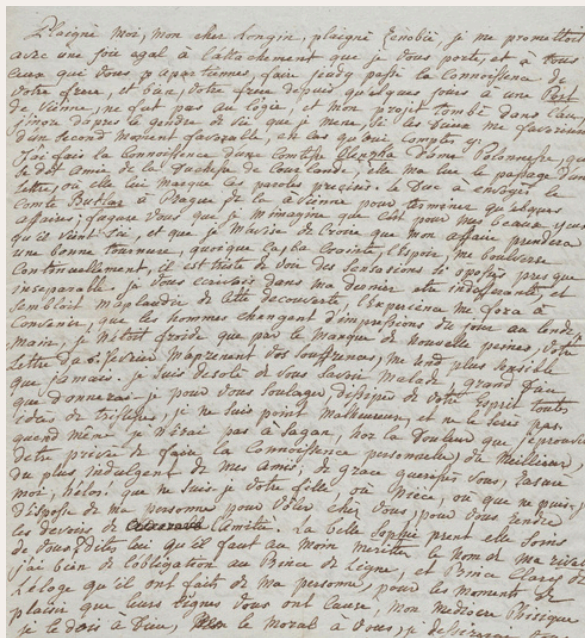 Plaigné moi, mon cher Longin, plaigné Zénobié, je me promettoit
avec une joie egal a l'attachement que je vous porte, et a tous
ceux que vous y apartiennes, faire jeudy passé la Connoissence de
votre frere, et bien, votre frere depuis quelques jours à une Port
de Vienne, ne fut pas au logie, et mon projet tombé dans l'eau,
j'ingore dapres le gendre de vie que je mene, si les Dieux me favoriseront
d'un second moment favorable, en cas qu'oui comptes y.
J'ai fais la Connoissence d'une Comtesse dame Polonnoise, qui
se dit amie de la Duchesse de Courlande, elle ma lue le passage d'une
lettre, où elle lui marque ces paroles precises. le Duc à envoyes le
Comte Butlar à Prague, de la a Vienne pour terminer quelques
affaires; fugure vous que je m'imagine que c'est pour mes beaux yeux
qu'il vient ici, et que je m'avise de Croire que mon affaire prendera
une bonne tournure, quoique ça, la Crainte, l'Espoir, me boulverse
Continuellement, il est triste de voir des sensations si oposés presque
inseparable. je vous ecrivois dans ma derniere etre indifferente, et
sembloit m'aplaudir de cette decouverte, l'Experience me força a
Convenir, que les hommes changent d'impressions du jour au lende-
main, je n'étoit froide que par le manque de nouvelle peines, votre
lettre da 6: fevrier m'aprenent vos souffrences, me rend plus sensible
que jamais. je suis desolé de vous savoir malade, grand Dieu
que donnerai-je pour vous soulager, dissiper de votre Esprit toutes
idées de tristesse, je ne suis point malheureux, et ne le serés pas
quend même je n'irai pas à Sagan, hor la Douleur que j'eprouverois
d'etre privée de faire la Connoissence personnelle du Meilleur,
du plus indulgent de mes Amis; de grace querisses vous, rasuré
moi, hélas! que ne suis je votre fille, où Niece, où que ne puis-je
d'Esposé de ma personne pour Voler chez Vous, pour vous rendre
les devoirs de l'amitié. La belle Sophie prent elle Soins
de vous? dites lui qu'il faut au moin meritter le nom de ma rivale
j'ai bien de l'obligation au Prince de Ligne, et Prince Clary de
L'éloge qu'il ont faits de ma personne, pour les moments de
plaisir que leurs lignes vous ont Causé, mon mediocre Phisique
je le dois à Dieu, le moral à Vous, je